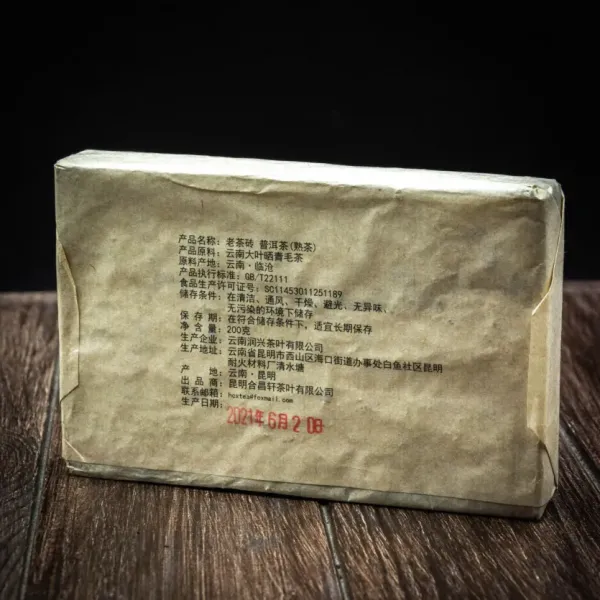 产品名称: 老茶砖 普洱茶(熟茶)
产品原料: 云南大叶晒青毛茶
原料产地: 云南·临沧
产品执行标准: GB/T22111
食品生产许可证号: SC11453011251189
储存条件: 在清洁、通风、干燥、避光、无异味、
无污染的环境下储存
保 存 期: 在符合储存条件下, 适宜长期保存
净 含 量: 200克
生产企业: 云南润兴茶叶有限公司
生产地址: 云南省昆明市西山区海口街道办事处白鱼社区昆明
耐火材料厂清水塘
产 地: 云南·昆明
出 品 商: 昆明合昌轩茶叶有限公司
联系邮箱: hcxtea@foxmail.com
生产日期: 2021年6月20日